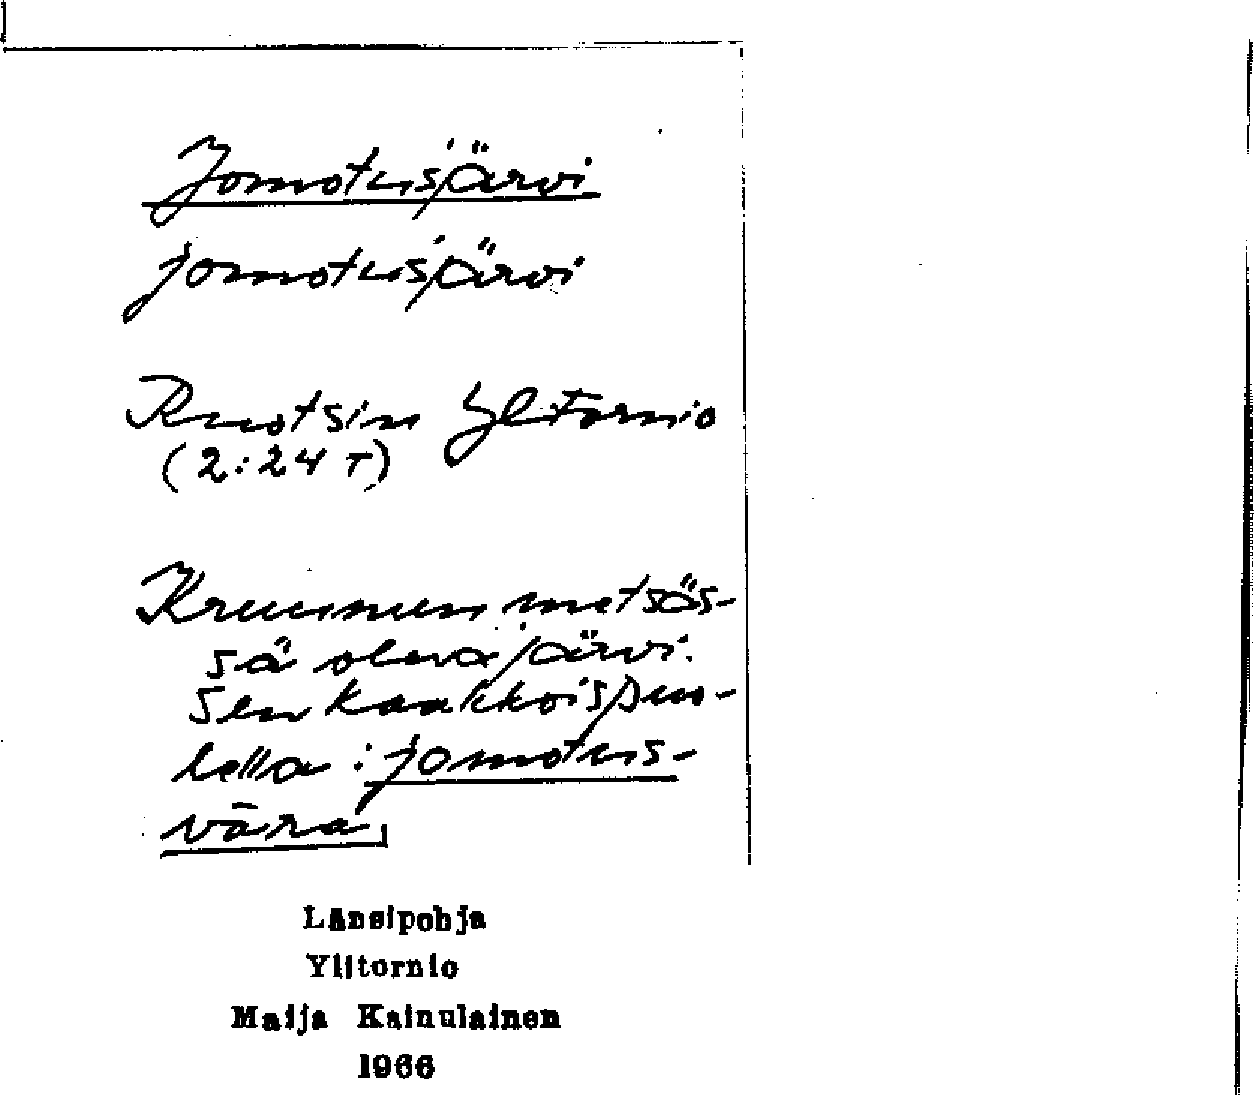 Jomotusjärvi
jomotusjärvi
Ruotsin Ylitornio
(2:24 T)
Kruunun metsäs-
sä oleva järvi.
Sen kaakkoispuo-
lella: jomotus-
vāra
Länsipohja
Ylitornio
Maija Kainulainen
1966